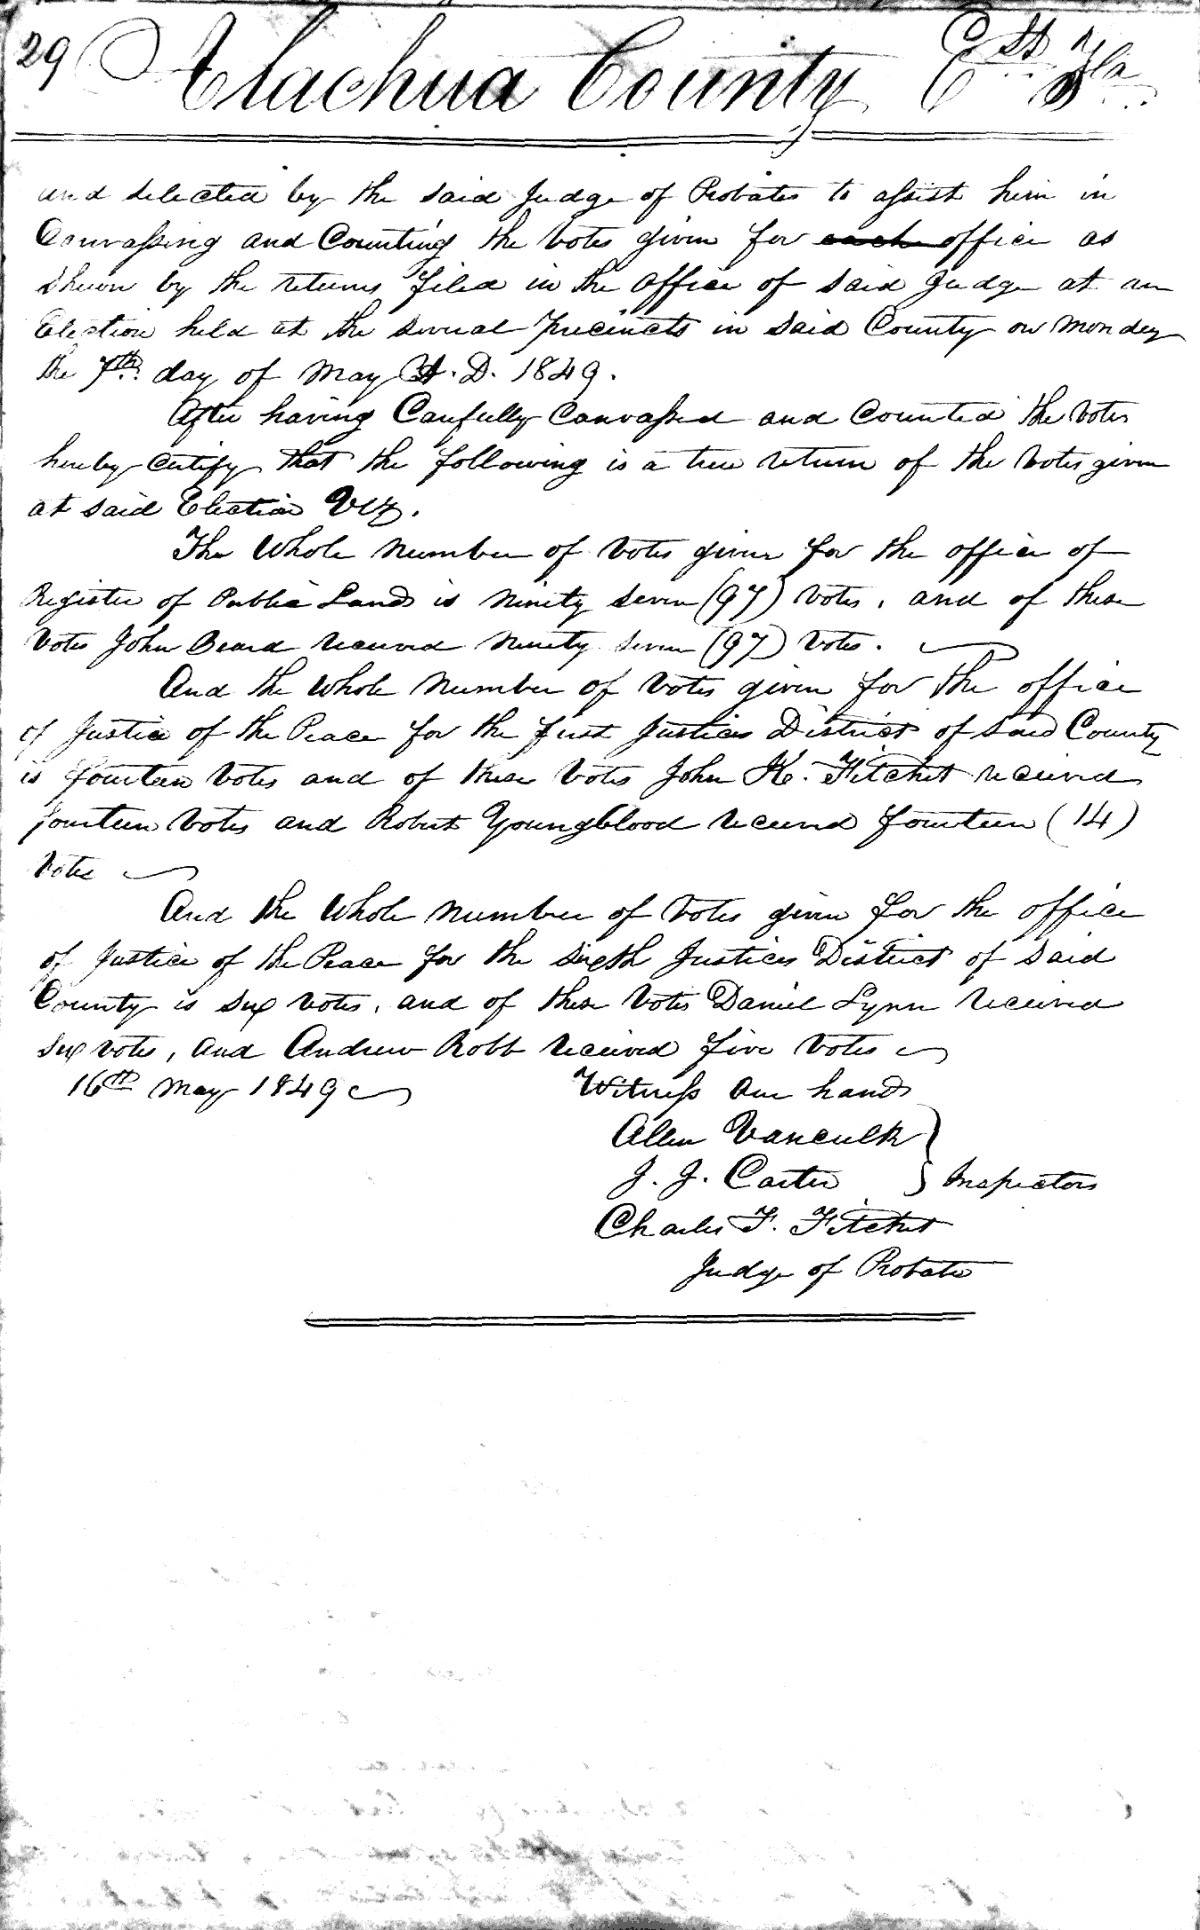 29 Alachua County Ct Fla
and selected by the said Judge of Probates to assist him in
Canvassing and Counting the votes given for each office as
shewn by the returns filed in the office of said Judge at an
Election held at the several Precincts in said County on Monday
the 7th day of May A. D. 1849.
After having Carefully Canvassed and Counted the votes
hereby certify that the following is a true return of the votes given
at said Election Viz.
The Whole number of votes given for the office of
Register of Public Lands is ninety seven (97) votes, and of these
votes John Beard received ninety seven (97) votes.
And the Whole number of votes given for the office
of Justice of the Peace for the first Justices District of said County
is fourteen votes and of these votes John K. Fitchet received
fourteen votes and Robert Youngblood received fourteen (14)
votes
And the Whole number of votes given for the office
of Justice of the Peace for the sixth Justices District of said
County is six votes, and of these votes Daniel Lynn received
six votes, and Andrew Robb received five votes
16th May 1849 Witness our hands
Allen
J. J. Carter Inspectors
Charles F. Fitchet
Judge of Probate